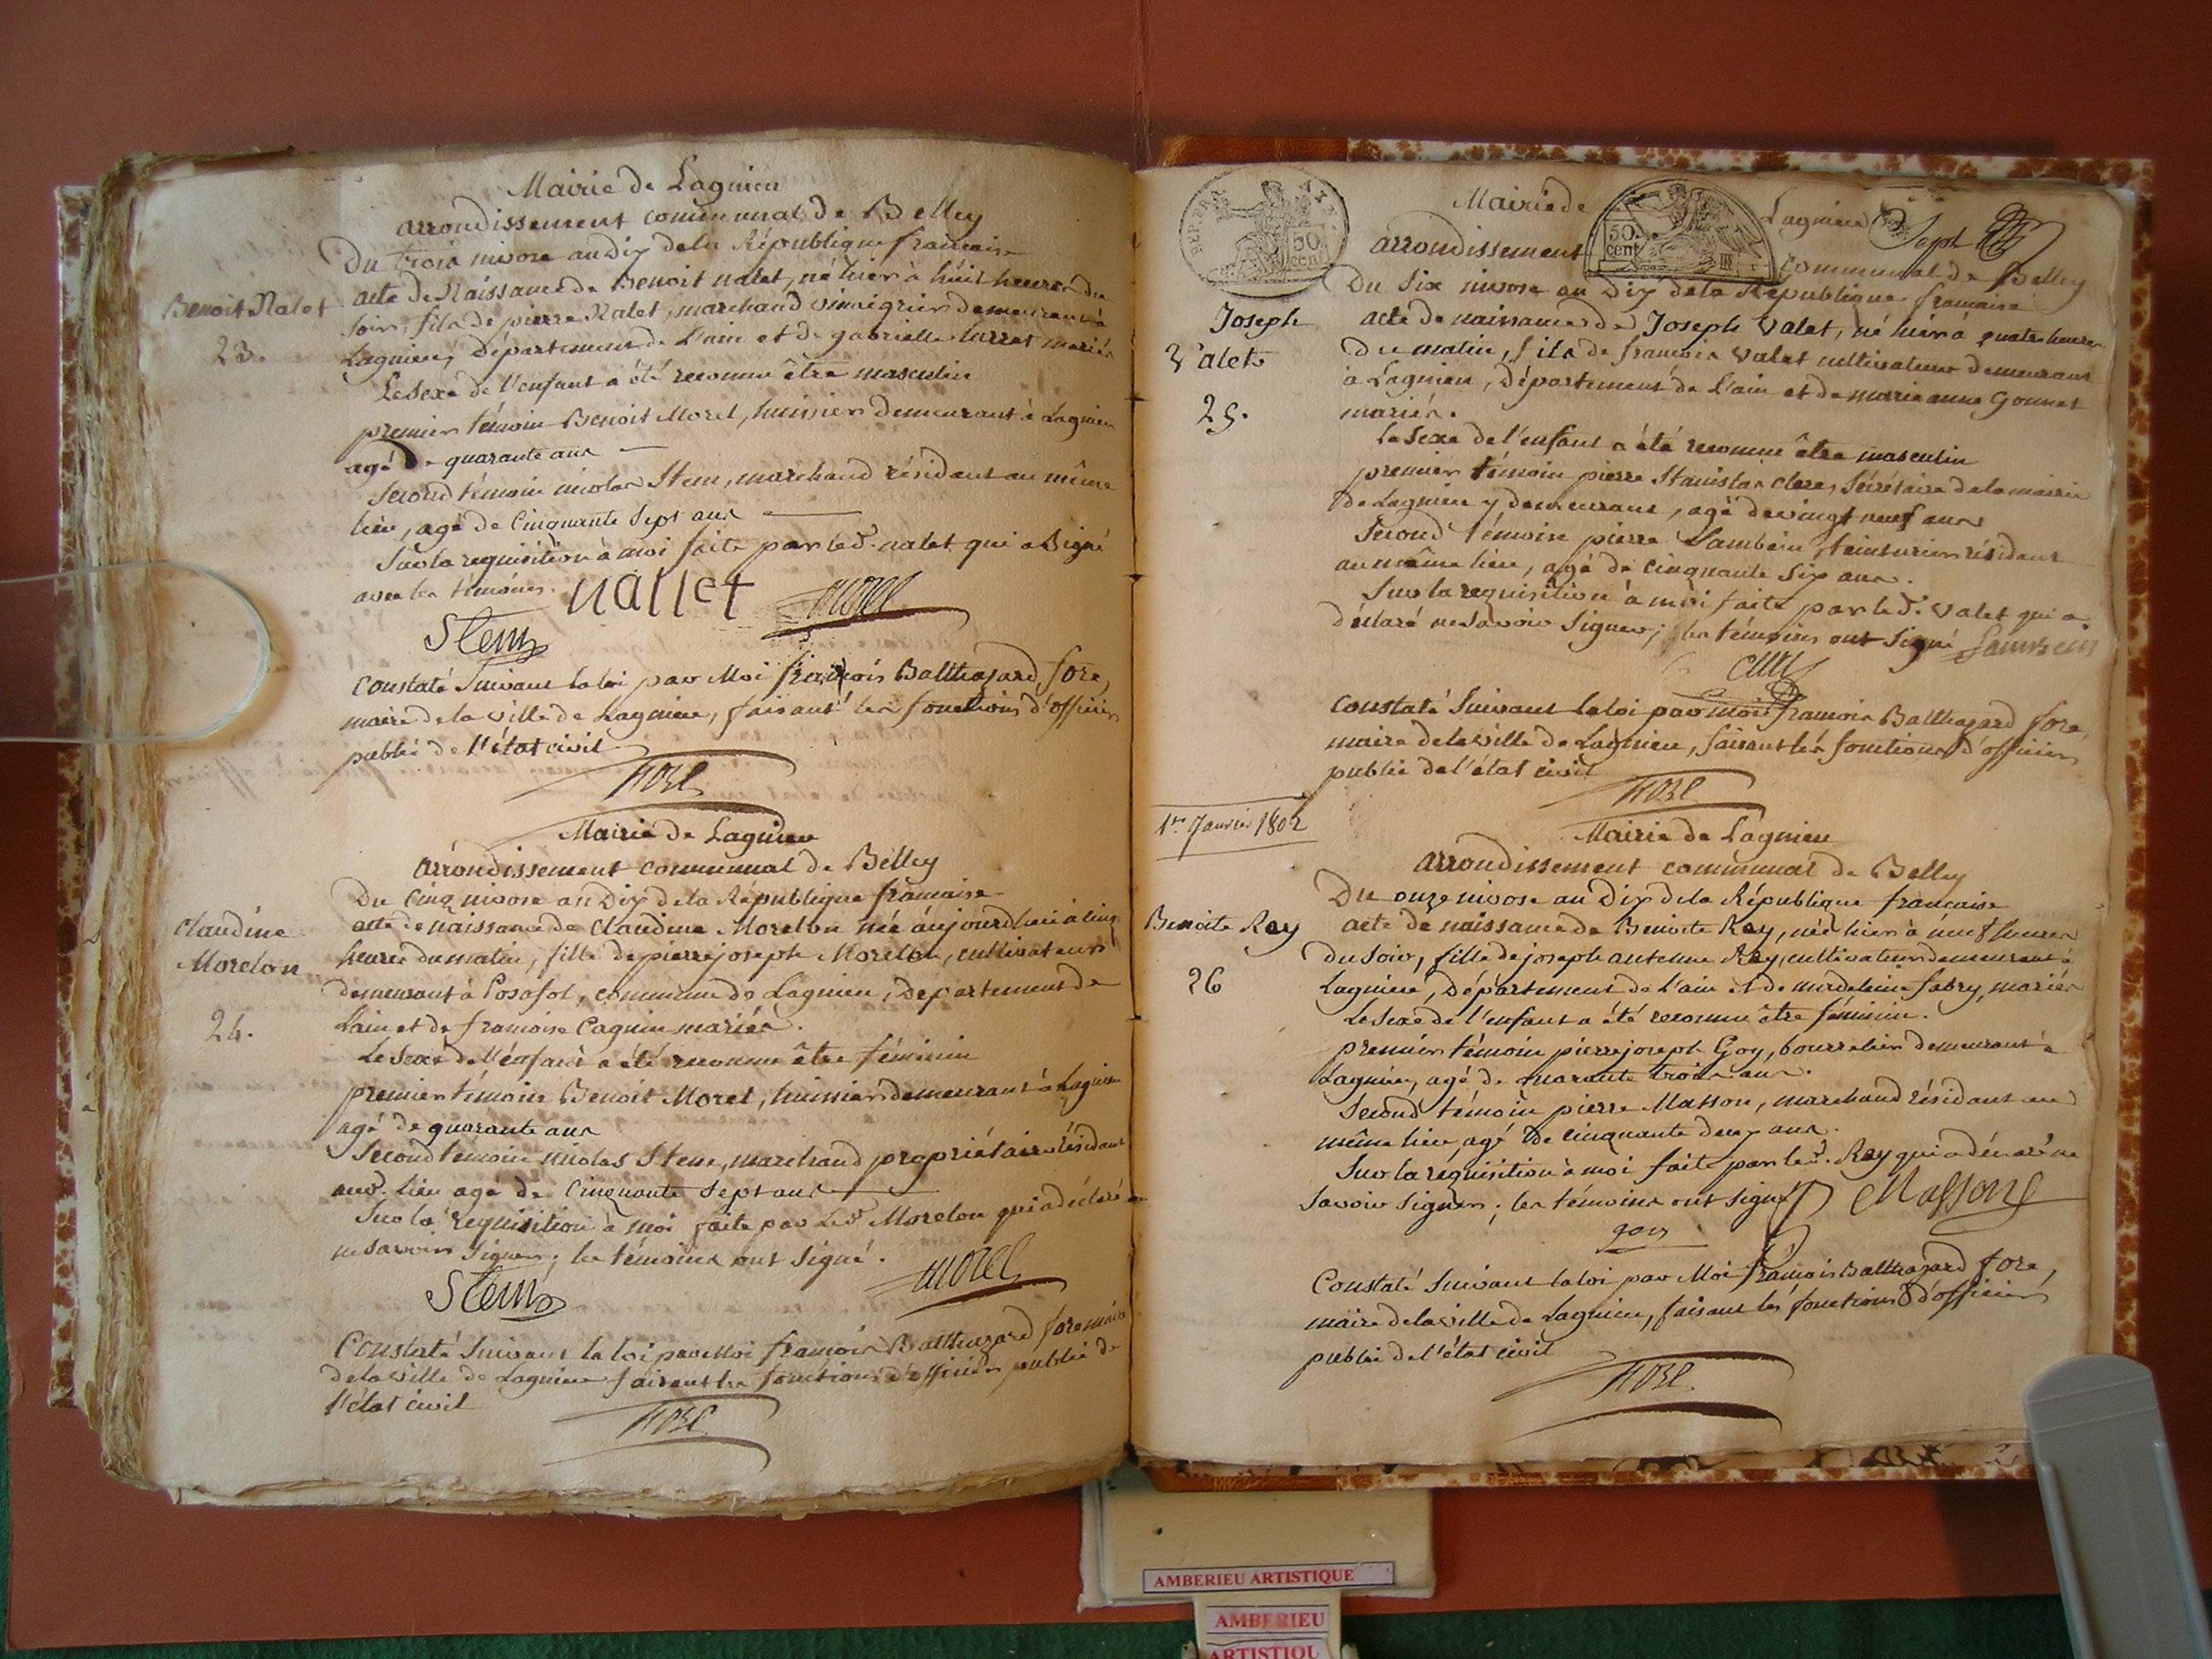 Mairie de Lagnieu
arrondissement communal de Belley
Du trois nivose an Dix de la République francaise
Benoit Nalet
23.
acte de Naissance de Benoit nalet, né hier à huit heures du
soir, fils de pierre Nalet, marchand vinaigrier demeurant à
Lagnieu, Département de l'ain et de gabrielle mariés
Le Sexe de l'enfant a été reconnu être masculin
premier témoin Benoit Morel, huissier demeurant à Lagnieu
agé de quarante ans
Second témoin nicolas Stem, marchand résidant au même
lieu, agé de Cinquante Sept ans
Sur la requisition à moi faite par le d. nalet qui a Signé
avec les témoins. nallet morel
Stem
Constaté Suivant la loi par Moi françois Balthazard fore,
maire de la ville de Lagnieu, faisant les fonctions d'officier
public de l'état civil
fore
Mairie de Lagnieu
arrondissement communal de Belley
Du Cinq nivose an Dix de la République francaise
Claudine
Morelon
24.
acte de naissance de Claudine Morelon née aujourdhui à cinq
heures du matin, fille de pierre joseph Morelon, cultivateur
demeurant à Posafol, commune de Lagnieu, Département de
Lain et de francoise Cagnin mariés.
Le Sexe de l'enfant a été reconnu être féminin
premier témoin Benoit Morel, huissier demeurant à Lagnieu
agé de quarante ans
Second témoin nicolas Stem, marchand propriétaire résidant
aud. lieu agé de Cinquante Sept ans
Sur la requisition à moi faite par Le d. Morelon qui a déclaré
ne savoir Signer; les témoins ont Signé.
Stem morel
Constaté Suivant la loi par Moi francois Balthazard fore maire
de la ville de Lagnieu faisant les fonctions d'officier public de
l'état civil
fore
REP. FRA.
50
cent
Mairie de Lagnieu Sept
50.
cent
arrondissement communal de Belley
Du Six nivose an Dix de la République francaise
Joseph
Valet
25.
acte de naissance de Joseph Valet, né hier à quatre heures
du matin, fils de francois Valet cultivateur demeurant
à Lagnieu, Département de l'ain et de marie anne Gonnet
mariés.
Le Sexe de l'enfant a été reconnu être masculin
premier témoin pierre Stanislas clerc, Sécrétaire de la mairie
de Lagnieu y demeurant, agé de vingt neuf ans
Second témoin pierre Lambein, teinturier résidant
au même lieu, agé de cinquante Six ans.
Sur la requisition à moi faite par le d. Valet qui a
déclaré ne Savoir Signer; les témoins ont Signé Lambein
Constaté Suivant la loi par moi francois Balthazard fore,
maire de la ville de Lagnieu, faisant les fonctions d'officier
public de l'état civil
fore
1er Janvier 1802
Mairie de Lagnieu
arrondissement communal de Belley
Du onze nivose an Dix de la République francaise
Benoite Rey
26
acte de naissance de Benoite Rey, née hier à neuf heures
du Soir, fille de joseph antelme Rey, cultivateur demeurant à
Lagnieu, Département de l'ain et de madeleine fabry, mariés
Le Sexe de l'enfant a été reconnu être féminin.
premier témoin pierre joseph Goy, bourrelier demeurant à
Lagnieu, agé de quarante trois ans.
Second témoin pierre Masson, marchand résidant au
même lieu, agé de cinquante deux ans.
Sur la réquisition à moi faite par le d. Rey qui a déclaré ne
savoir signer; les témoins ont signé Masson
goy
Constaté Suivant la loi par Moi francois Balthazard fore,
maire de la ville de Lagnieu, faisant les fonctions d'officier
public de l'état civil
fore
AMBERIEU ARTISTIQUE
AMBERIEU
ARTISTIQU